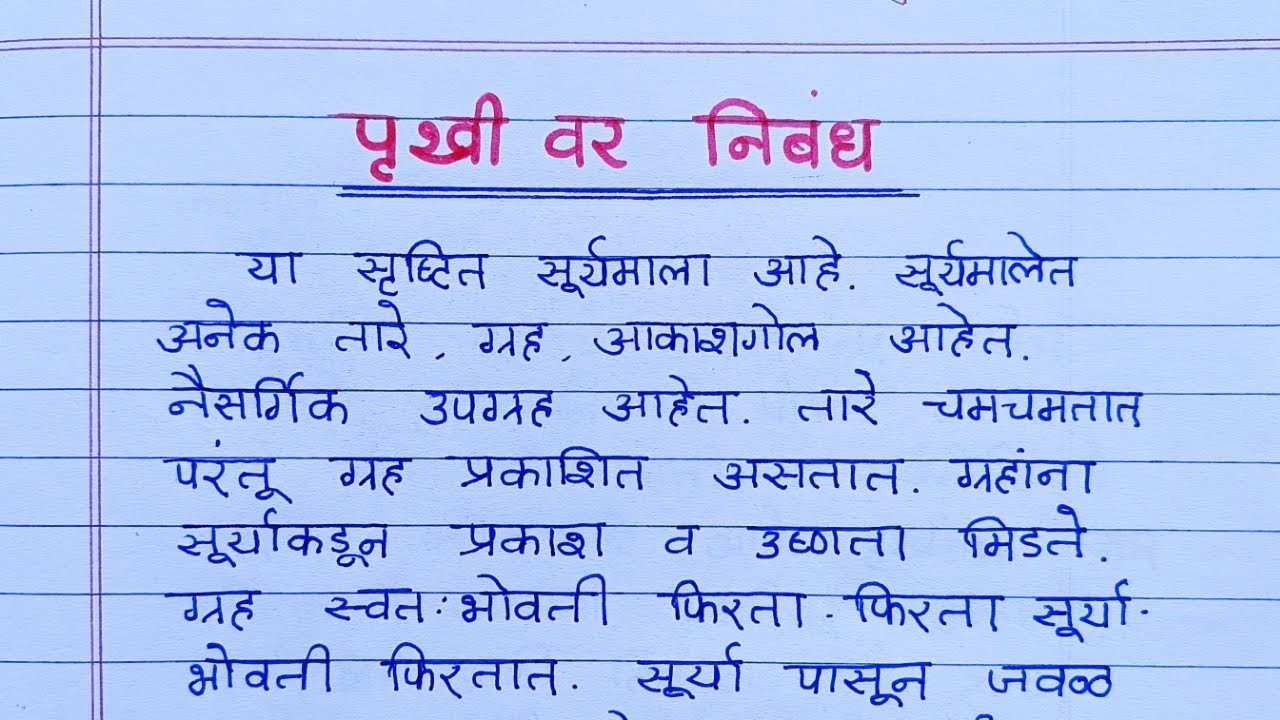 पृथ्वी वर निबंध
या सृष्टित सूर्यमाला आहे. सूर्यमालेत
अनेक तारे, ग्रह, आकाशगोल आहेत.
नैसर्गिक उपग्रह आहेत. तारे चमचमतात
परंतू ग्रह प्रकाशित असतात. ग्रहांना
सूर्याकडून प्रकाश व उष्णता मिडते.
ग्रह स्वतःभोवती फिरता-फिरता सूर्या-
भोवती फिरतात. सूर्या पासून जवळ